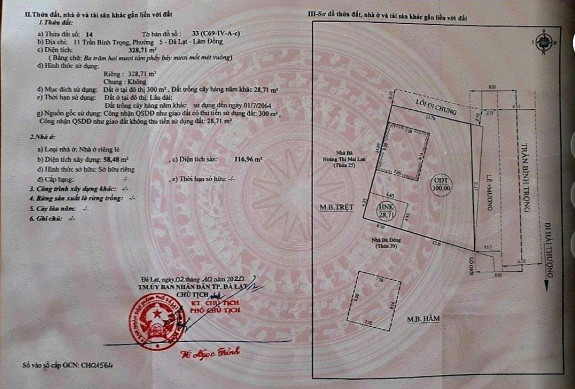 II. Thửa đất, nhà ở và tài sản khác gắn liền với đất
1. Thửa đất:
a) Thửa đất số: 14 Tờ bản đồ số: 33 (C69-IV-A-c)
b) Địa chỉ: 11 Trần Bình Trọng, Phường 5 - Đà Lạt - Lâm Đồng
c) Diện tích: 328,71 m²
(Bằng chữ: Ba trăm hai mươi tám phẩy bảy mươi mốt mét vuông)
d) Hình thức sử dụng:
Riêng: 328,71 m²
Chung: Không
đ) Mục đích sử dụng: Đất ở tại đô thị 300 m², Đất trồng cây hàng năm khác 28,71 m²
e) Thời hạn sử dụng: Đất ở tại đô thị: Lâu dài;
Đất trồng cây hàng năm khác: sử dụng đến ngày 01/7/2064
g) Nguồn gốc sử dụng: Công nhận QSDĐ như giao đất có thu tiền sử dụng đất: 300 m²
Công nhận QSDĐ như giao đất không thu tiền sử dụng đất: 28,71 m²
2. Nhà ở:
a) Loại nhà ở: Nhà ở riêng lẻ
b) Diện tích xây dựng: 58,48 m² c) Diện tích sàn: 116,96 m²
d) Hình thức sở hữu: Sở hữu riêng
đ) Cấp hạng: -/- e) Thời hạn sở hữu: -/-
3. Công trình xây dựng khác: -/-
4. Rừng sản xuất là rừng trồng: -/-
5. Cây lâu năm: -/-
6. Ghi chú: -/-
Đà Lạt, ngày 02 tháng 10 năm 2020
TM. ỦY BAN NHÂN DÂN TP. ĐÀ LẠT
CHỦ TỊCH
KT CHỦ TỊCH
PHÓ CHỦ TỊCH
Võ Ngọc Trình
Số vào sổ cấp GCN: CH01564
III- Sơ đồ thửa đất, nhà ở và tài sản khác gắn liền với đất
LỐI ĐI CHUNG
Nhà Bà
Hoàng Thị Mai Lan
(Thửa 25)
ODT
300,00
M.B.TRỆT
HNK
28,71
Nhà Bà Dòng
(Thửa 39)
M.B. HẦM
LỀ+MƯƠNG
TRẦN BÌNH TRỌNG
ĐI HẢI THƯỢNG